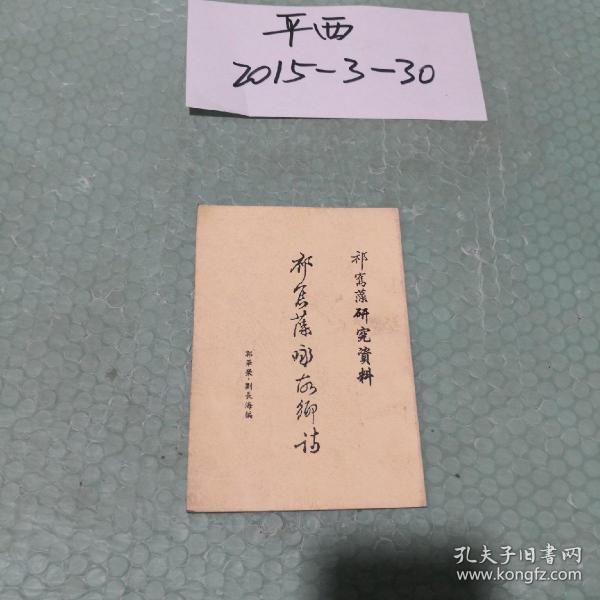 平西
2015-3-30
祁寯藻研究資料
祁寯藻咏故鄉诗
郭華榮·劉長海編
孔夫子旧书网
www.kongfz.com